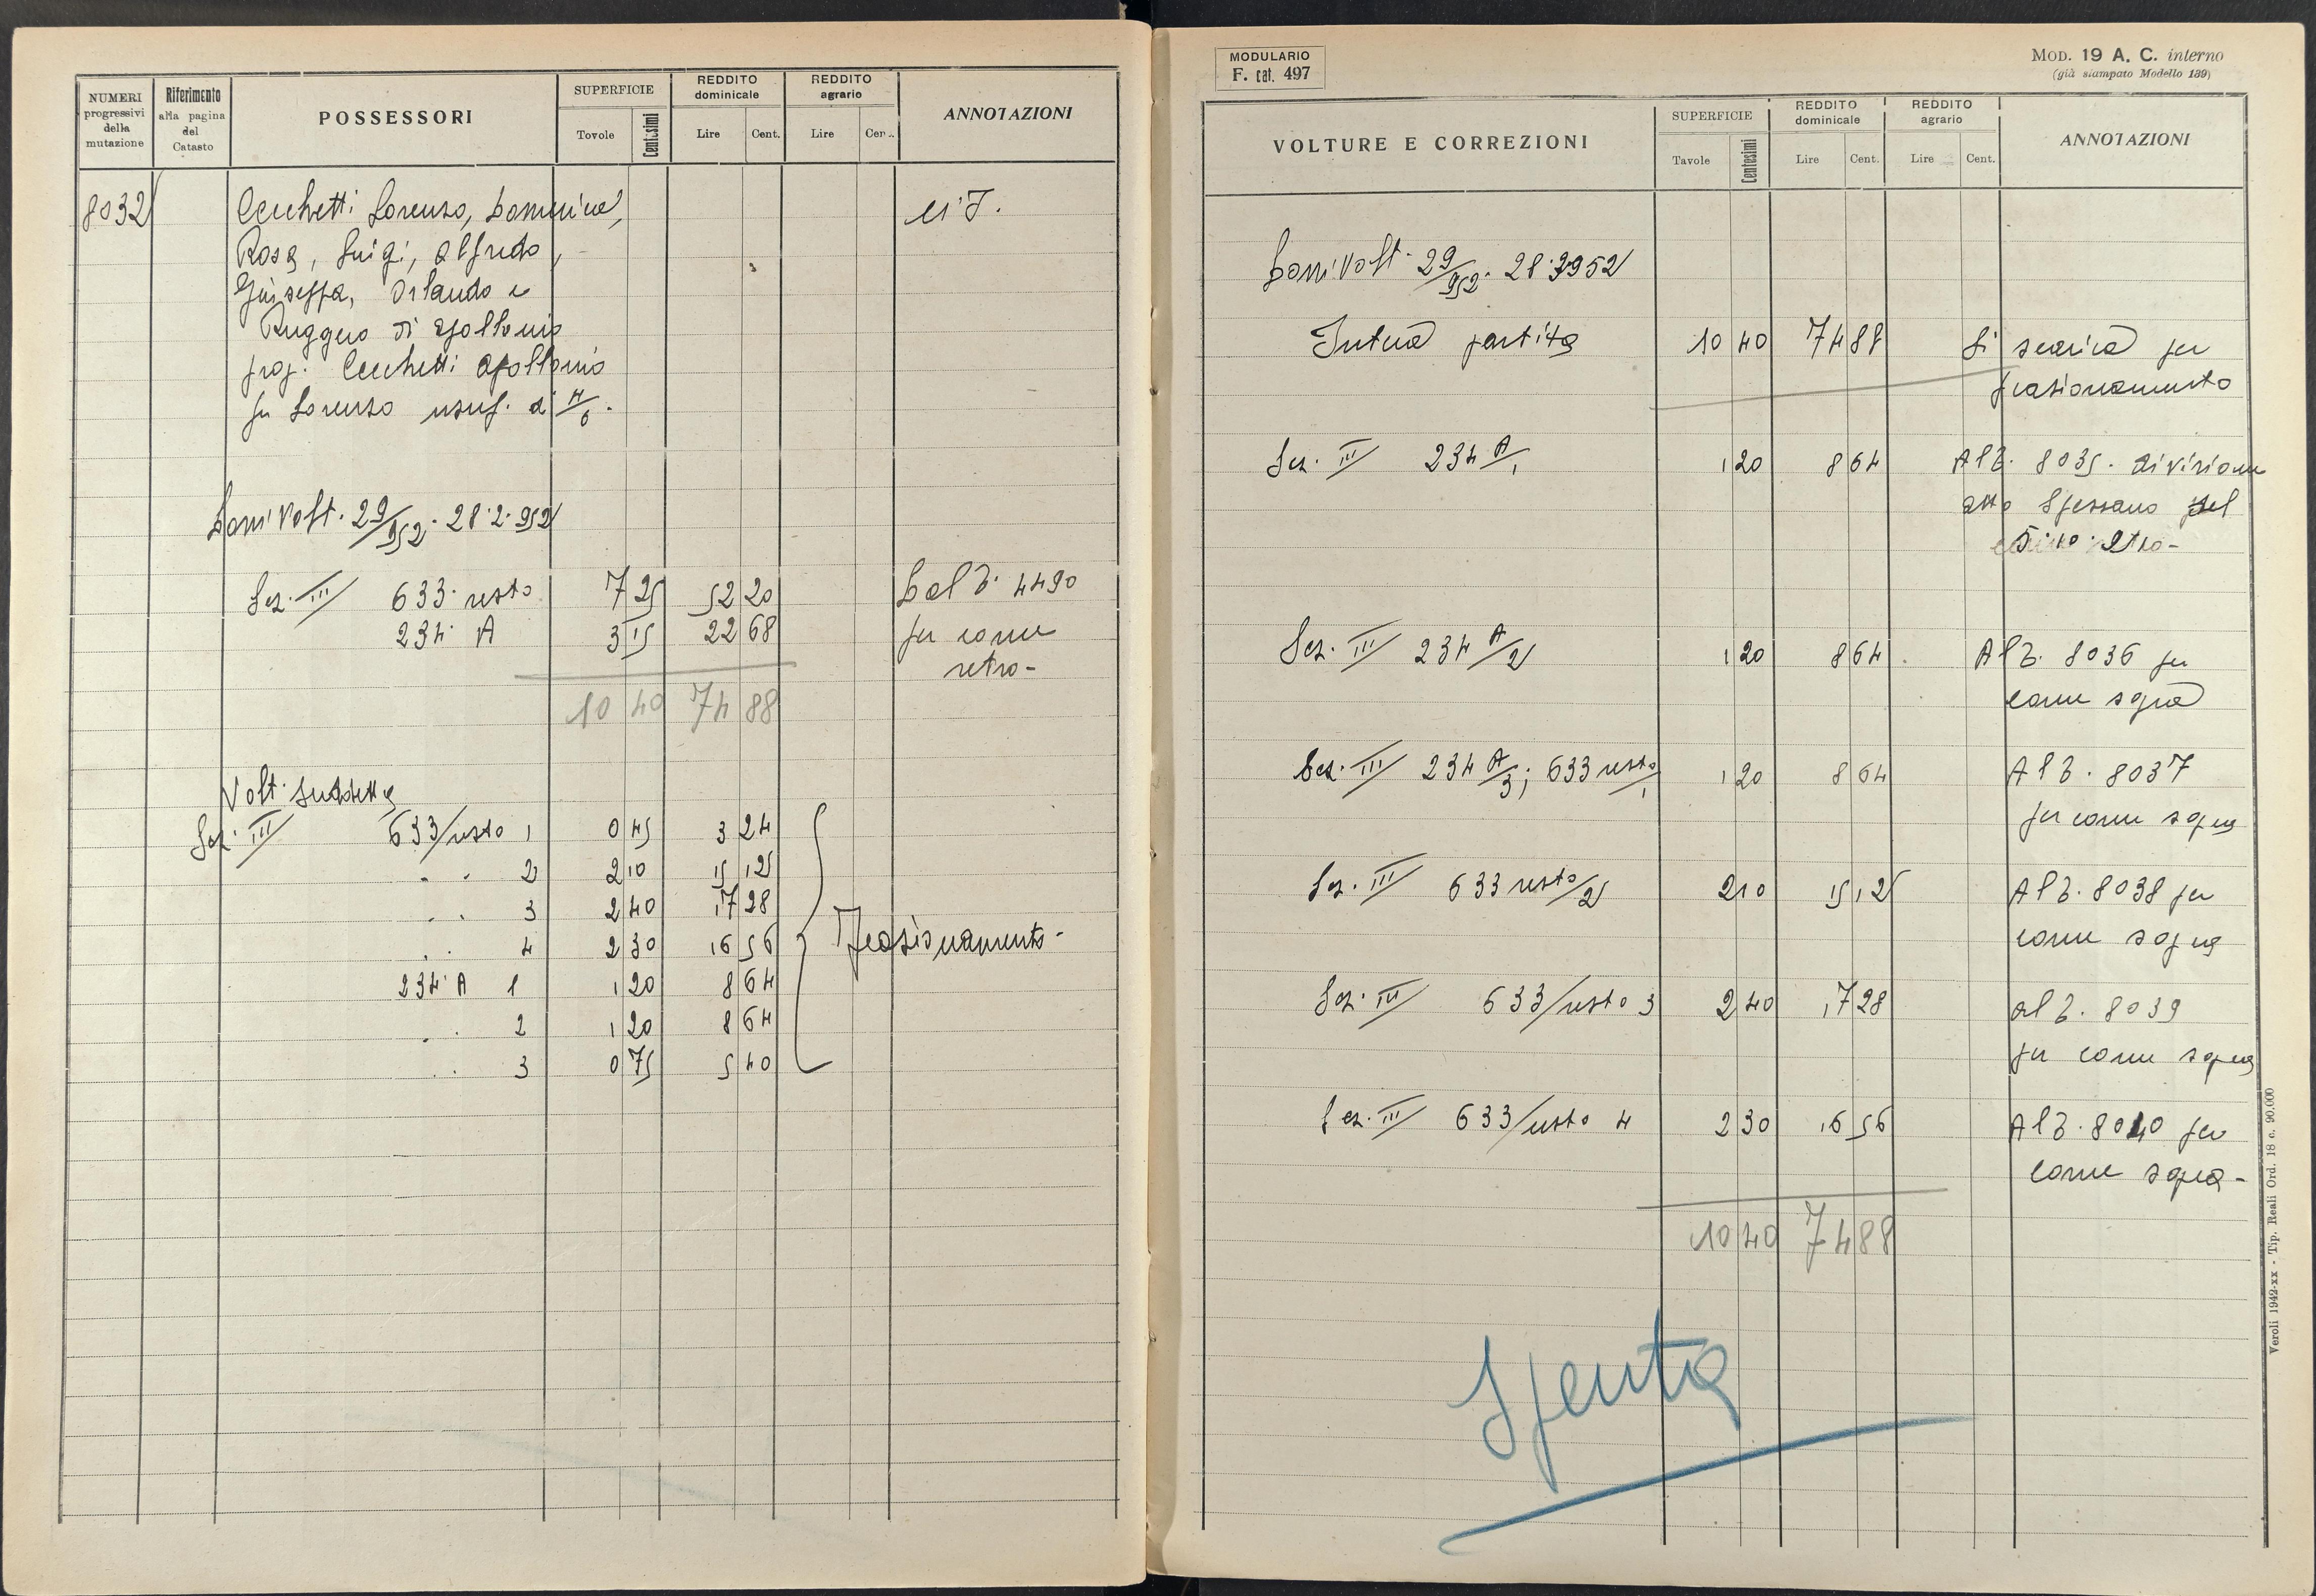 NUMERI progressivi della mutazione
Riferimento alla pagina del Catasto
POSSESSORI
SUPERFICIE
Tovole Centesimi
REDDITO dominicale
Lire Cent.
REDDITO agrario
Lire Cen..
ANNOTAZIONI
8032 Cecchetti Lorenzo, Domenica,
Rosa, Luigi, Alfredo,
Giuseppa, Orlando e
Ruggero di Apollonio
prop. Cecchetti Apollonio
fu Lorenzo usuf. di
Dom. Volt. 29/952. 28.2.952
Sez. III 633 resto 7 25 52 20 Dal 4490
234 A 3 15 22 68 per come
retro-
10 40 74 88
Volt. suddetta
Sez. III 633/resto 1 0 45 3 24
" " 2 2 10 15 12
" " 3 2 40 17 28
" " 4 2 30 16 56 Frazionamento-
234 A 1 1 20 8 64
" " 2 1 20 8 64
" " 3 0 75 5 40
MODULARIO
F. cat. 497
MOD. 19 A. C. interno
(già stampato Modello 189)
VOLTURE E CORREZIONI
SUPERFICIE
Tavole Centesimi
REDDITO dominicale
Lire Cent.
REDDITO agrario
Lire Cent.
ANNOTAZIONI
Dom. Volt. 29/952. 28.2.952
Intera partita 10 40 74 88 Si scarica per
frazionamento
Sez. III 234 A/1 1 20 8 64 Al 8035. divisione
atto Spessano del
Sez. III 234 A/2 1 20 8 64 Al 8036 per
come sopra
Sez. III 234 A/3; 633 resto/1 1 20 8 64 Al 8037
per come sopra
Sez. III 633 resto/2 2 10 15 12 Al 8038 per
come sopra
Sez. III 633/resto 3 2 40 17 28 Al 8039
per come sopra
Sez. III 633/resto 4 2 30 16 56 Al 8040 per
come sopra-
10 40 74 88
Spenta
Veroli 1942-xx - Tip. Reali Ord. 18 c. 90.000